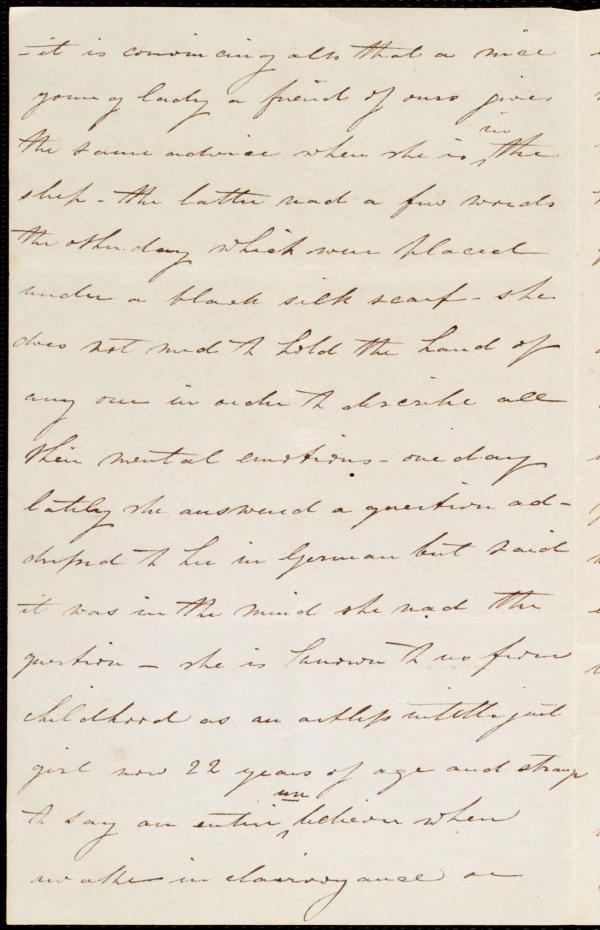 - it is convincing also that a nice
young lady a friend of ours gives
the same advice when she is ^in the
sleep - the latter read a few words
the other day which were placed
under a black silk scarf - she
does not need to hold the hand of
any one in order to describe all
their mental emotions - one day
lately she answered a question ad-
dressed to her in German but said
it was in the mind she read the
question - she is known to us from
childhood as an artless intelligent
girl now 22 years of age and strange
to say an entire ^un believer when
awake in clairvoyance or